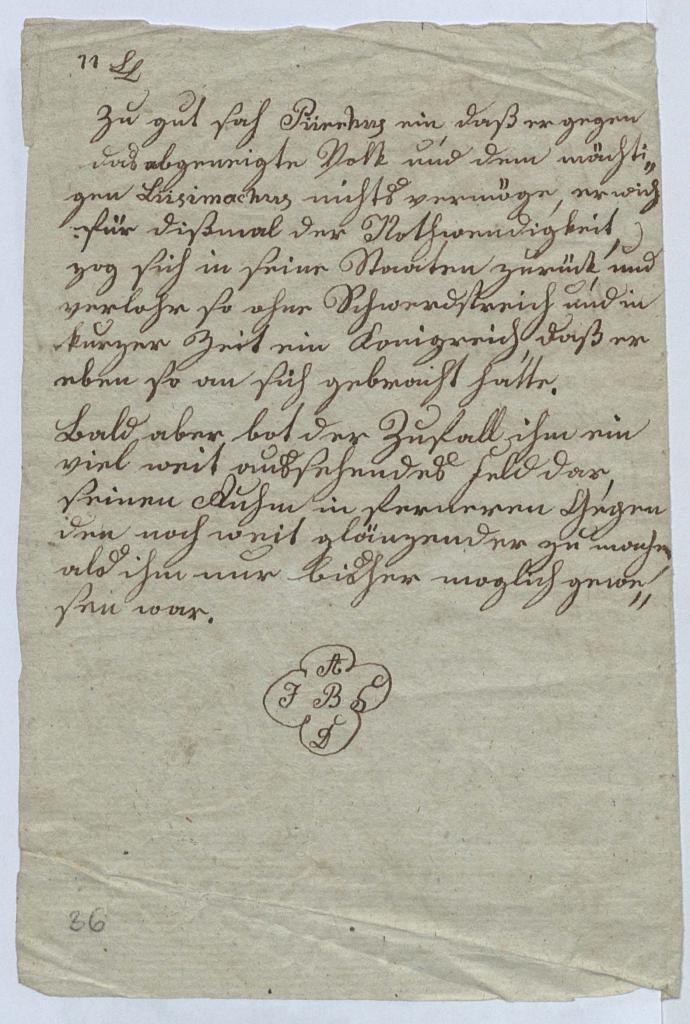 11
Zu gut sah Pürrhus ein, daß er gegen
das abgeneigte Volk und dem mächti„
gen Lüsimachus nichts vermöge, er wich
für dißmal der Nothwendigkeit,
zog sich in seine Staaten zurück, und
verlohr so ohne Schwerdstreich und in
kurzer Zeit ein Konigreich, daß er
eben so an sich gebracht hatte.
Bald aber, bot der Zufall ihm ein
viel weit aussehendes Feld dar,
seinen Ruhm in ferneren Gegen
den noch weit glänzender zu mache
als ihm nur bisher moglich gewe„
sen war.
A
J B
D
36